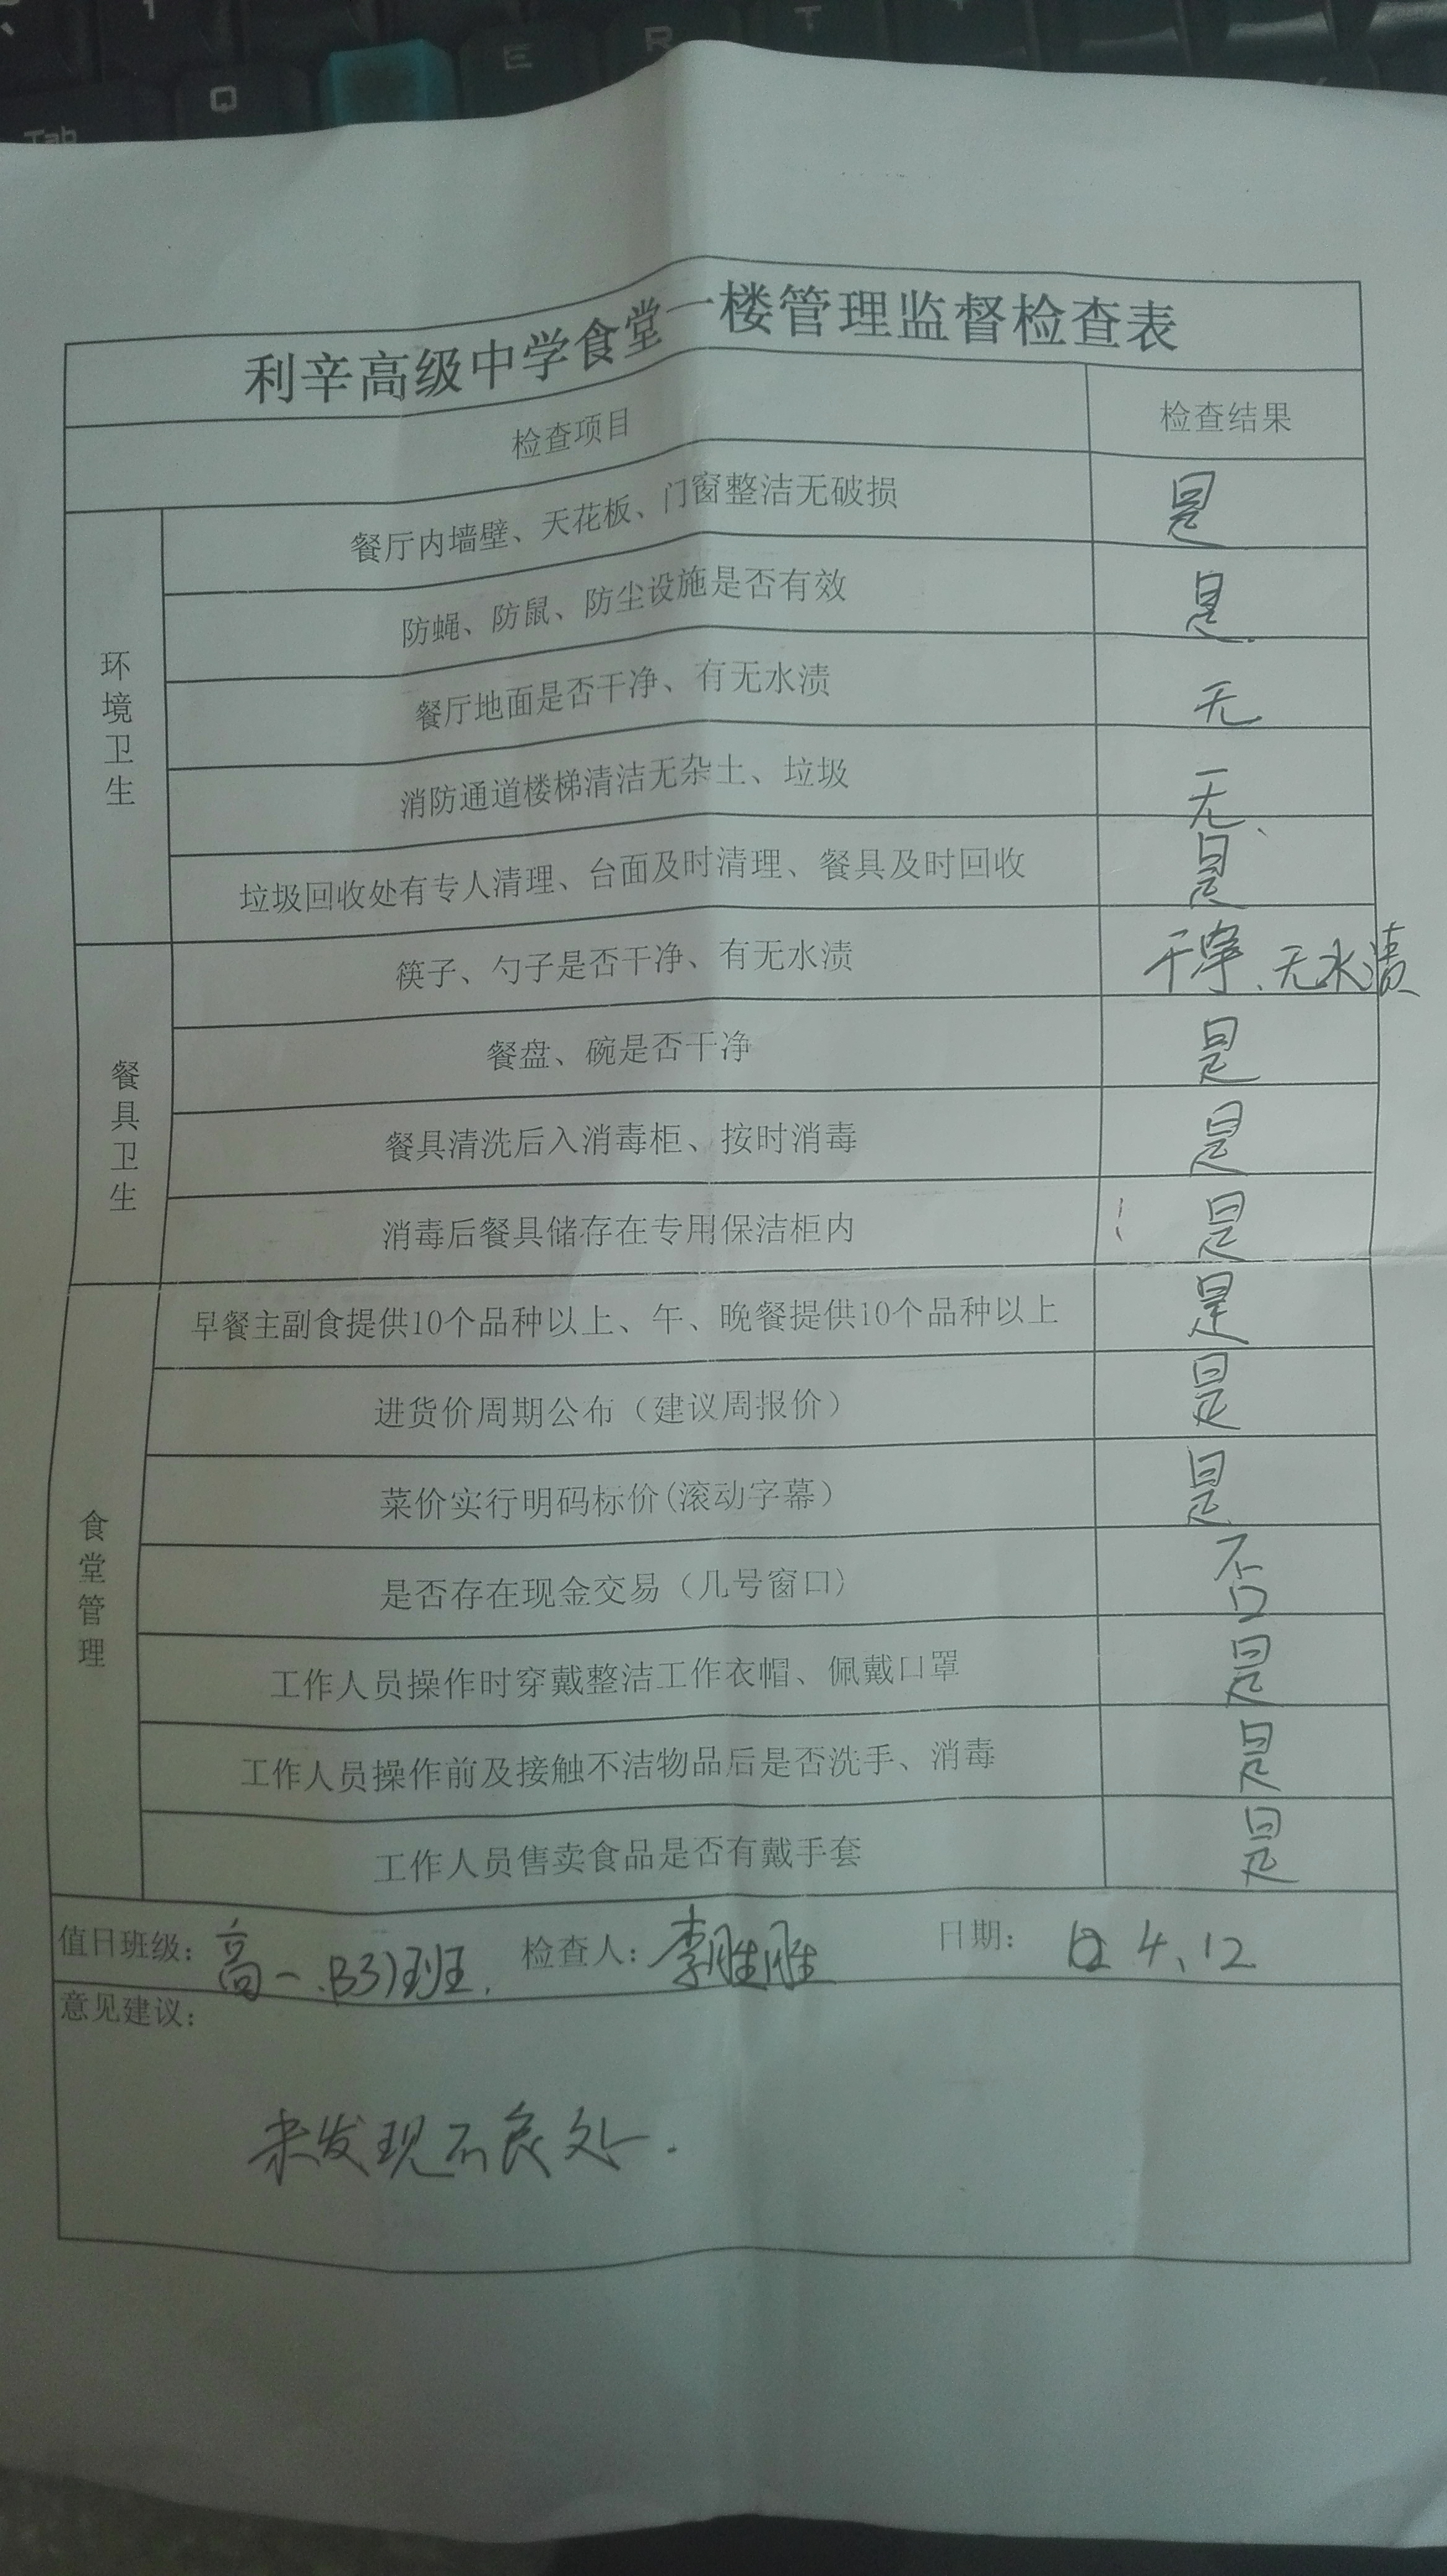 利辛高级中学食堂一楼管理监督检查表
检查项目 检查结果
环境卫生
餐厅内墙壁、天花板、门窗整洁无破损 是
防蝇、防鼠、防尘设施是否有效 是
餐厅地面是否干净、有无水渍 无
消防通道楼梯清洁无杂土、垃圾 无
垃圾回收处有专人清理、台面及时清理、餐具及时回收 是
餐具卫生
筷子、勺子是否干净、有无水渍 干净、无水渍
餐盘、碗是否干净 是
餐具清洗后入消毒柜、按时消毒 是
消毒后餐具储存在专用保洁柜内 是
食堂管理
早餐主副食提供10个品种以上、午、晚餐提供10个品种以上 是
进货价周期公布（建议周报价） 是
菜价实行明码标价(滚动字幕） 是
是否存在现金交易（几号窗口） 否
工作人员操作时穿戴整洁工作衣帽、佩戴口罩 是
工作人员操作前及接触不洁物品后是否洗手、消毒 是
工作人员售卖食品是否有戴手套 是
值日班级：高一 班. 检查人：李胜胜 日期： 4、12
意见建议：
未发现不良处.
Q
E
R
T
Tab